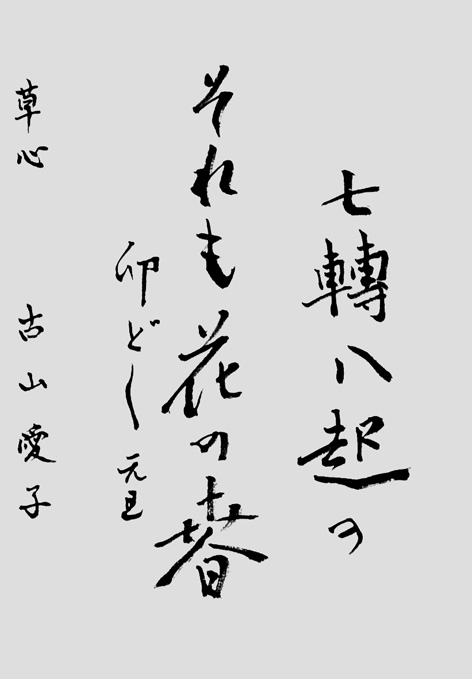 七轉八起の
それも花の春
卯どし 元旦
草心 古山愛子